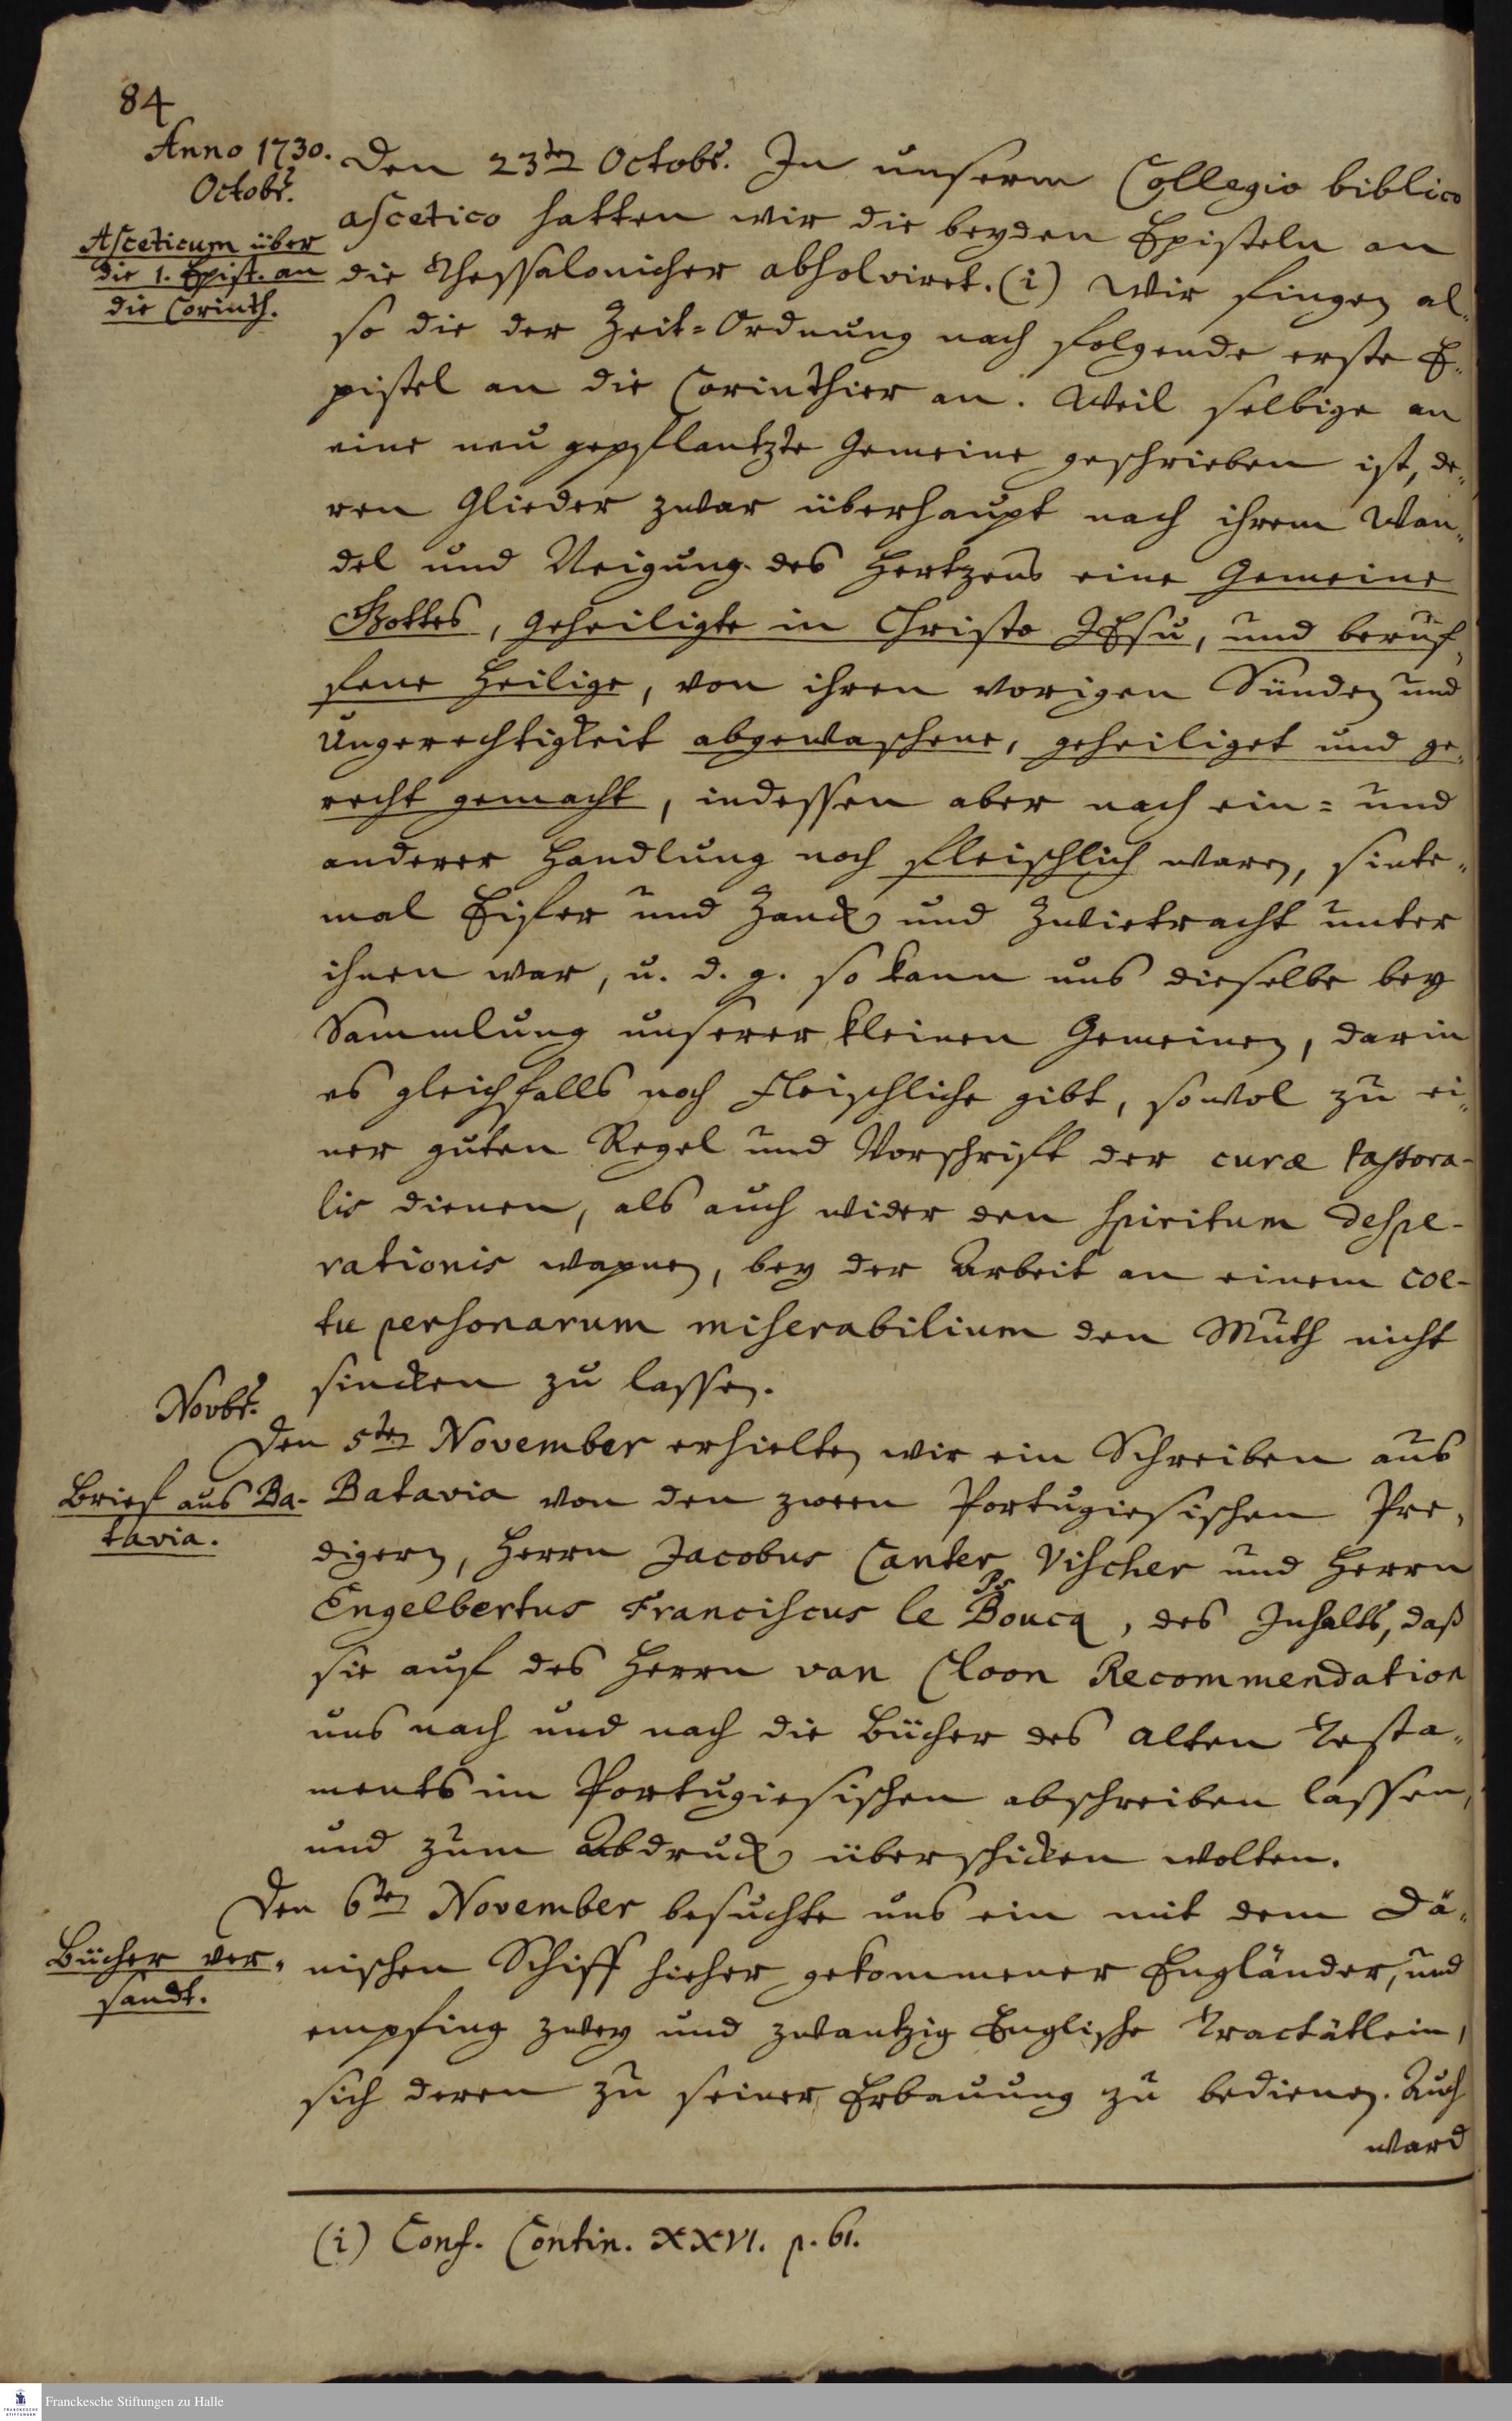 84
Anno 1730.
Octobr.
Asceticum über
die 1. Epist. an
die Corinth.
Den 23ten Octobr. In unserm Collegio biblico
ascetico hatten wir die beyden Episteln an
die Thessalonicher absolviret. (i) Wir fingen al„
so die der Zeit=Ordnung nach folgende erste E„
pistel an die Corinthier an. Weil selbige an
eine neu gepflantzte Gemeine geschrieben ist, de„
ren Glieder zwar überhaupt nach ihrem Wan„
del und Neigung des Hertzens eine Gemeine
Gottes, Geheiligte in Christo JEsu, und beruf„
fene Heilige, von ihren vorigen Sünden und
Ungerechtigkeit abgewaschene, geheiliget und ge„
recht gemacht, indessen aber nach ein= und
anderer Handlung noch fleischlich waren, sinte„
mal Eifer und Zanck und Zwietracht unter
ihnen war, u. d. g. so kann uns dieselbe bey
Sammlung unserer kleinen Gemeinen, darin
es gleichfalls noch Fleischliche gibt, sowol zu ei„
ner guten Regel und Vorschrift der curæ pastora-
lis dienen, als auch wider den spiritum despe-
rationis wapnen, bey der Arbeit an einem coe-
tu personarum miserabilium den Muth nicht
sincken zu lassen.
Novbr.
Den 5ten November erhielten wir ein Schreiben aus
Brief aus Ba-
tavia.
Batavia von den zween Portugiesischen Pre„
digern, Herrn Jacobus Canter Vischer und Herrn
Engelbertus Franciscus le Boucq, des Inhalts, daß
sie auf des Herrn van Cloon Recommendation
uns nach und nach die Bücher des Alten Testa„
ments im Portugiesischen abschreiben lassen,
und zum Abdruck überschicken wolten.
Den 6ten November besuchte uns ein mit dem Dä„
Bücher ver„
sandt.
nischen Schiff hieher gekommener Engländer, und
empfing zwey und zwantzig Englische Tractätlein,
sich deren zu seiner Erbauung zu bedienen. Auch
ward
(i) Conf. Contin. XXVI. p. 61.
Franckesche Stiftungen zu Halle